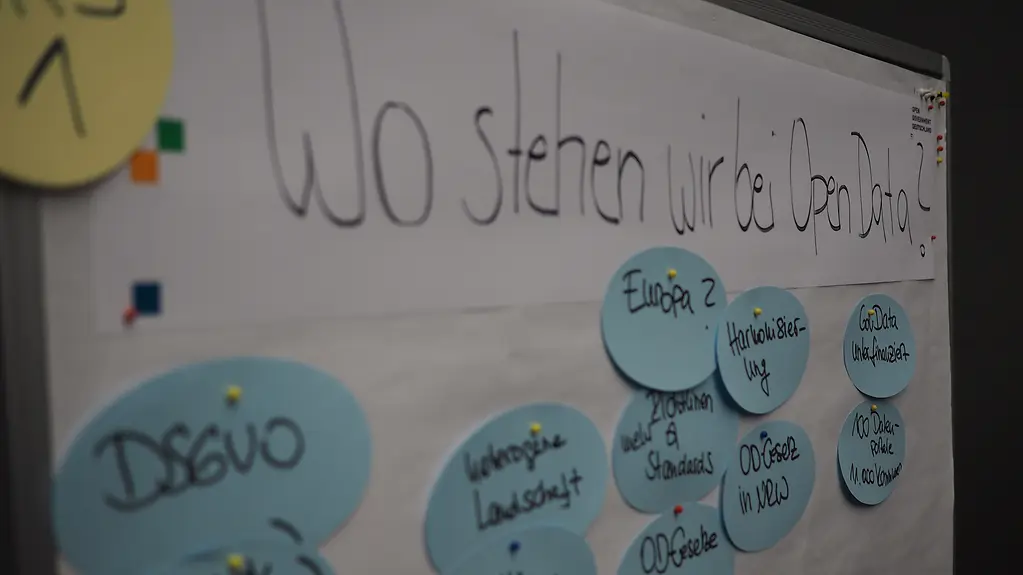 1
Wo stehen wir bei Open Data?
OPEN
GOVERNMENT
DEUTSCHLAND
Europa?
Harmonisier-
ung
GovData
unterfinanziert
DSGVO
heterogene
Landschaft
mehr &
Standards
OD-Gesetz
in NRW
100 Daten-
portale
11.000 Kommunen
OD-Gesetze